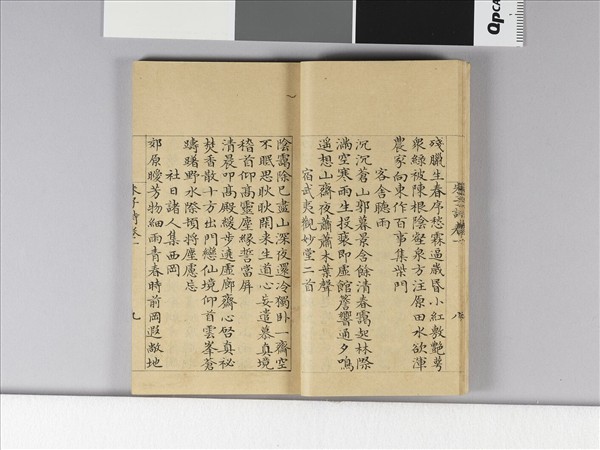 殘臘生春序愁霖逼歲昏小紅敷艷萼
衆綠被陳根陰壑泉方注原田水欲渾
農家向東作百事集柴門
客舍聽雨
沉沉蒼山郭暮景含餘清春靄起林際
滿空寒雨生投裝即虛館簷響通夕鳴
遥想山齋夜蕭蕭木葉聲
宿武夷觀妙堂二首
陰靄除已盡山深夜還冷獨卧一齋空
不眠思耿耿閑来生道心妄遣慕真境
稽首仰高靈塵緣誓當屏
清晨叩高殿緩步遶虛廊齋心啓真秘
焚香散十方出門戀仙境仰首雲峯蒼
躊躇野水際頓將塵慮忘
社日諸人集西岡
郊原曖芳物細雨青春時前岡遐敞地
朱子詩卷一
九
QpCA